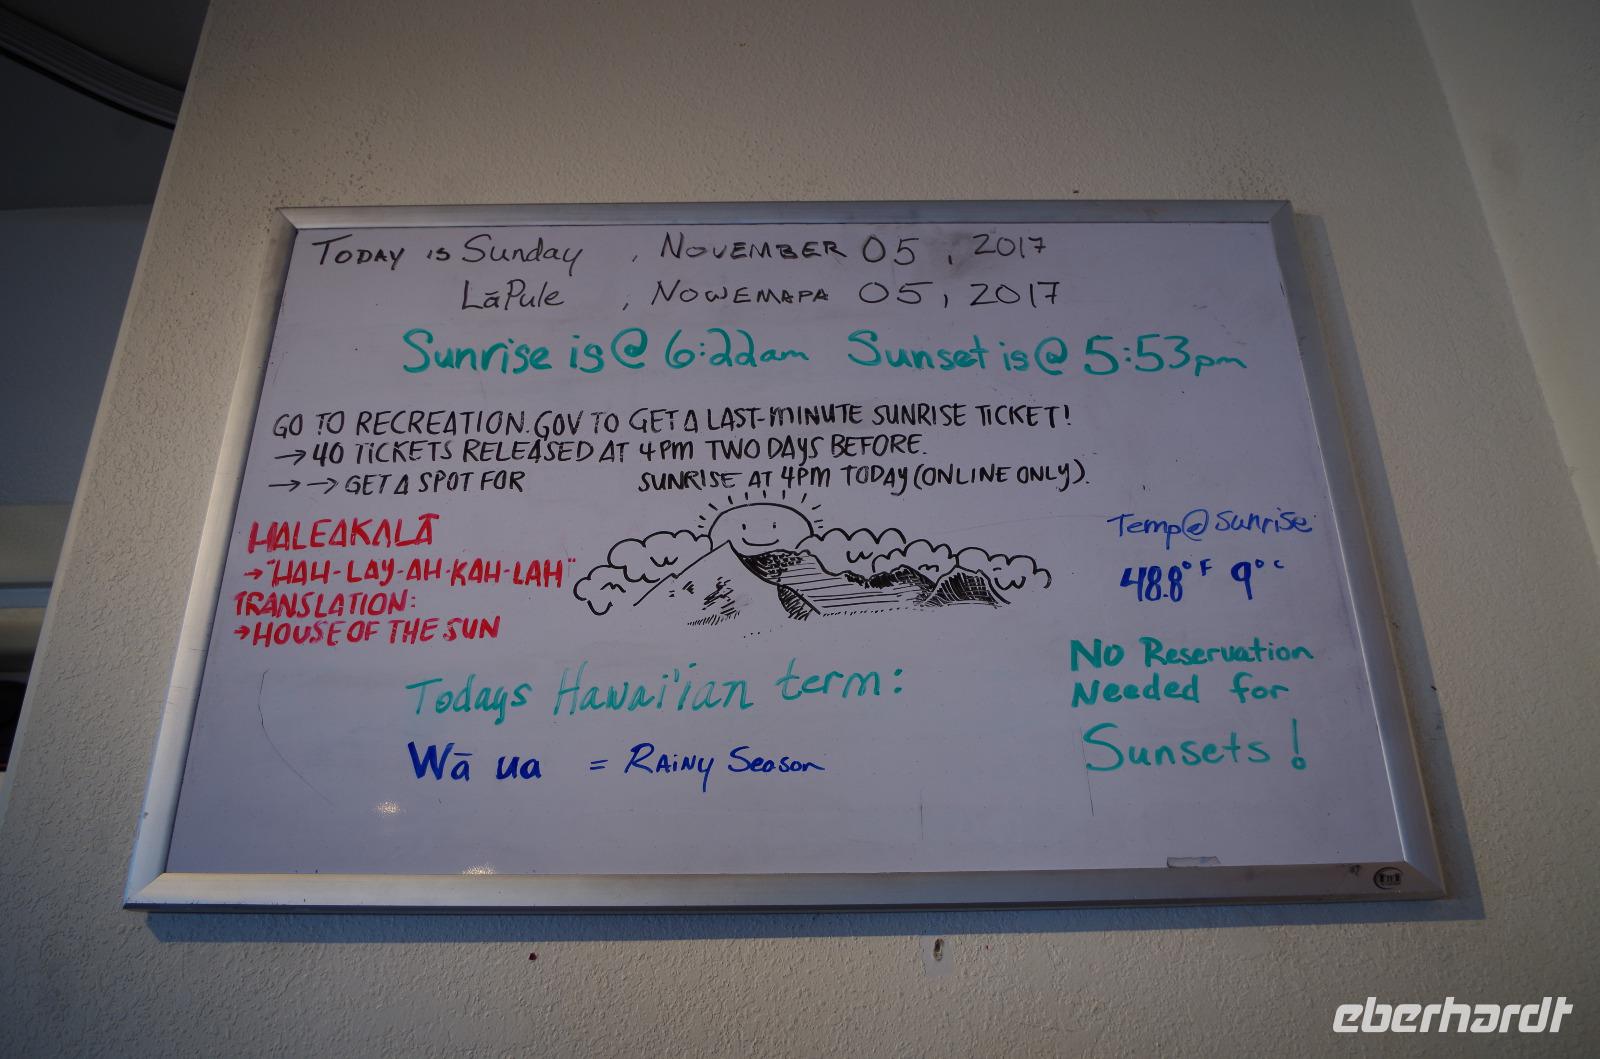 TODAY IS Sunday , NOVEMBER 05, 2017
LāPule , NOWEMAPA 05, 2017
Sunrise is @ 6:22am Sunset is @ 5:53pm
GO TO RECREATION.GOV TO GET A LAST-MINUTE SUNRISE TICKET!
→ 40 TICKETS RELEASED AT 4PM TWO DAYS BEFORE.
→ → GET A SPOT FOR SUNRISE AT 4PM TODAY (ONLINE ONLY).
HALEAKALĀ
→ "HAH-LAY-AH-KAH-LAH"
TRANSLATION:
→ HOUSE OF THE SUN
Temp @ Sunrise
48.8°F 9°C
Todays Hawai'ian term:
Wā ua = RAINY Season
NO Reservation
Needed for
Sunsets!
eberhardt